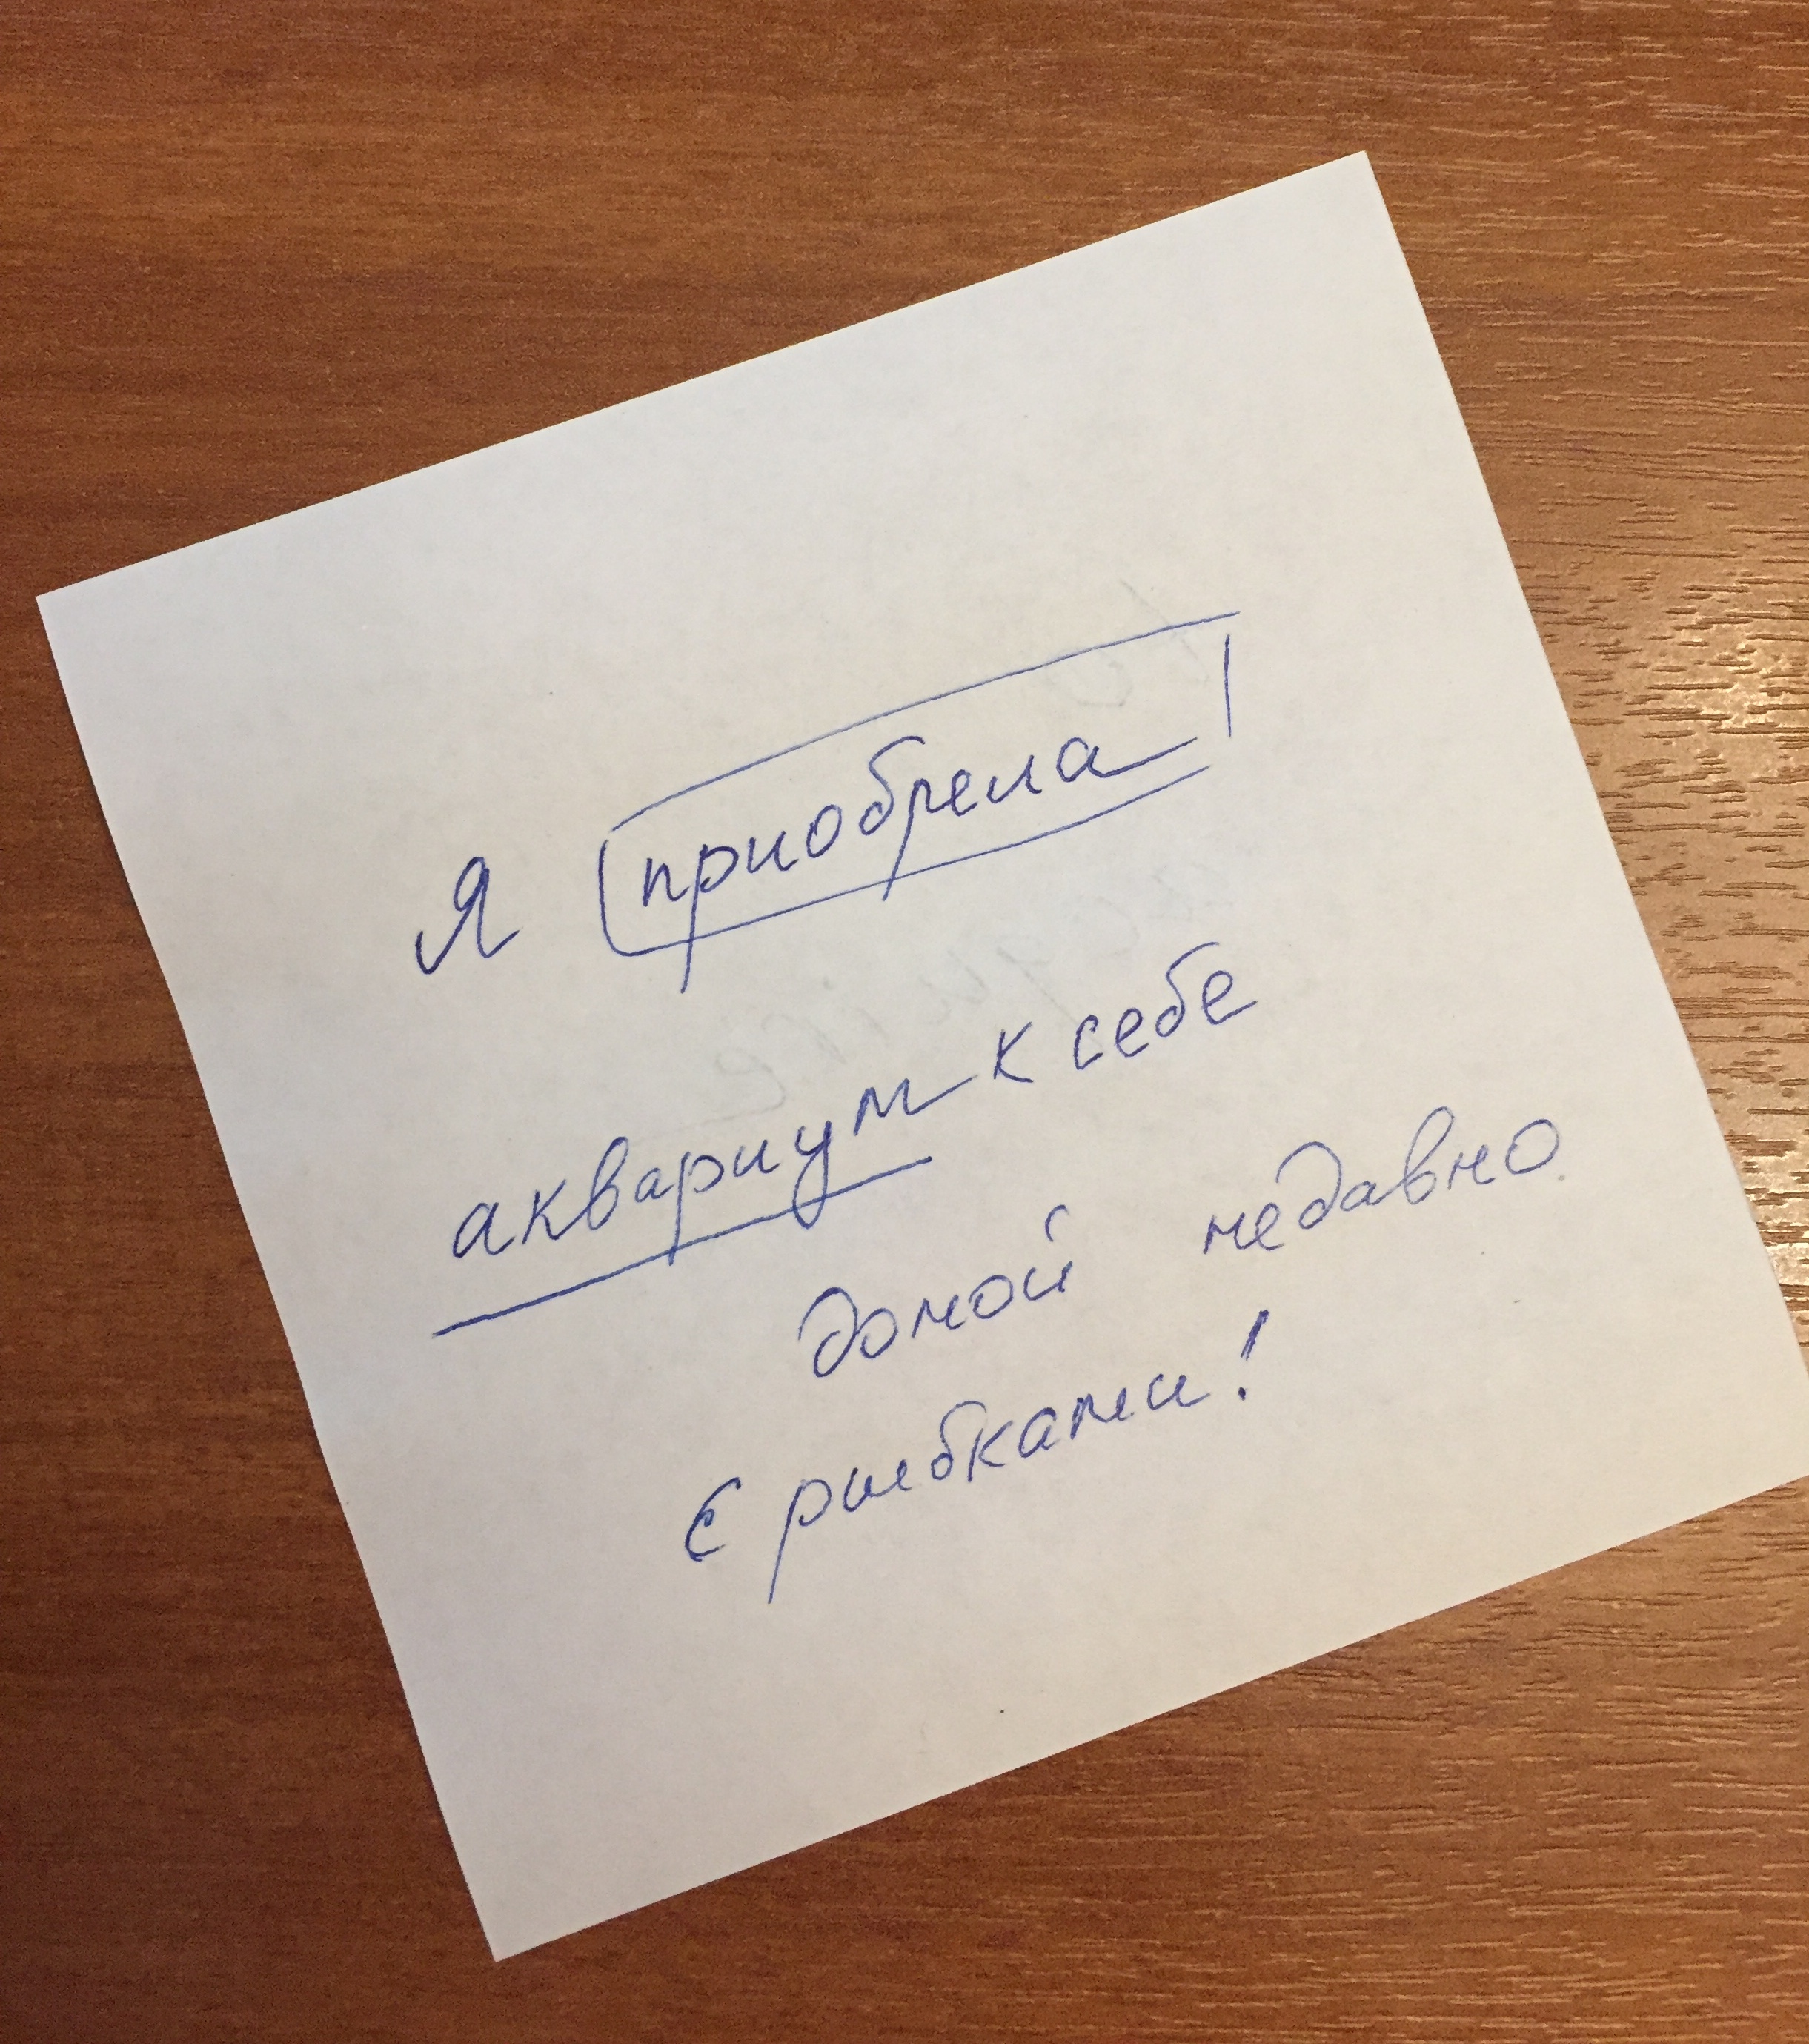 Я приобрела
аквариум к себе
домой недавно
с рыбками!